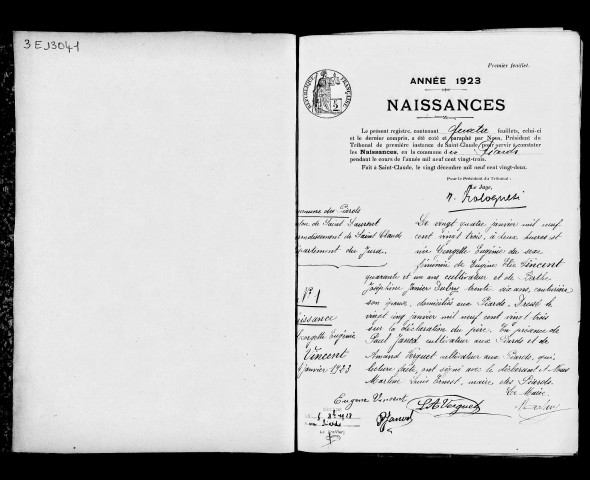 3 E 13041
Premier feuillet.
ANNÉE 1923
NAISSANCES
RÉPUBLIQUE FRANÇAISE
Le présent registre, contenant quatre feuillets, celui-ci
et le dernier compris, a été coté et paraphé par Nous, Président du
Tribunal de première instance de Saint-Claude, pour servir à constater
les Naissances, en la commune des Piards
pendant le cours de l'année mil neuf cent vingt-trois.
Fait à Saint-Claude, le vingt décembre mil neuf cent vingt-deux.
Pour le Président du Tribunal :
Le Juge,
mmune des Piards
ton de Saint Laurent
rondissement de Saint Claude
partement du Jura.
N° 1
issance
eorgette Eugénie
Vincent
janvier 1923
Le vingt quatre janvier mil neuf
cent vingt trois, à deux heures est
née Georgette Eugénie du sexe
féminin de Eugène Vincent
quarante et un ans cultivateur et de Berthe
Joséphine Janier Dubry trente six ans, couturière
son épouse, domiciliés aux Piards. Dressé le
vingt cinq janvier mil neuf cent vingt trois
sur la déclaration du père. En présence de
Paul Janod cultivateur aux Piards et de
Armand Verguet cultivateur aux Piards, qui,
lecture faite, ont signé avec le déclarant et Nous
Martine Louis Ernest, maire des Piards.
Le Maire,
Eugène Vincent
P Janod
L A Verguet